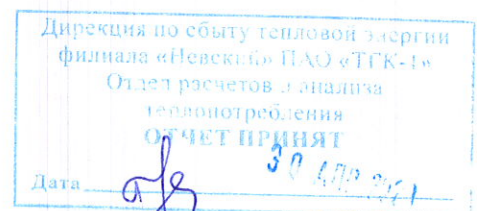 Дирекция по сбыту тепловой энергии
филиала «Невский» ПАО «ТГК-1»
Отдел расчетов и анализа
теплопотребления
ОТЧЕТ ПРИНЯТ
30 АПР
Дата